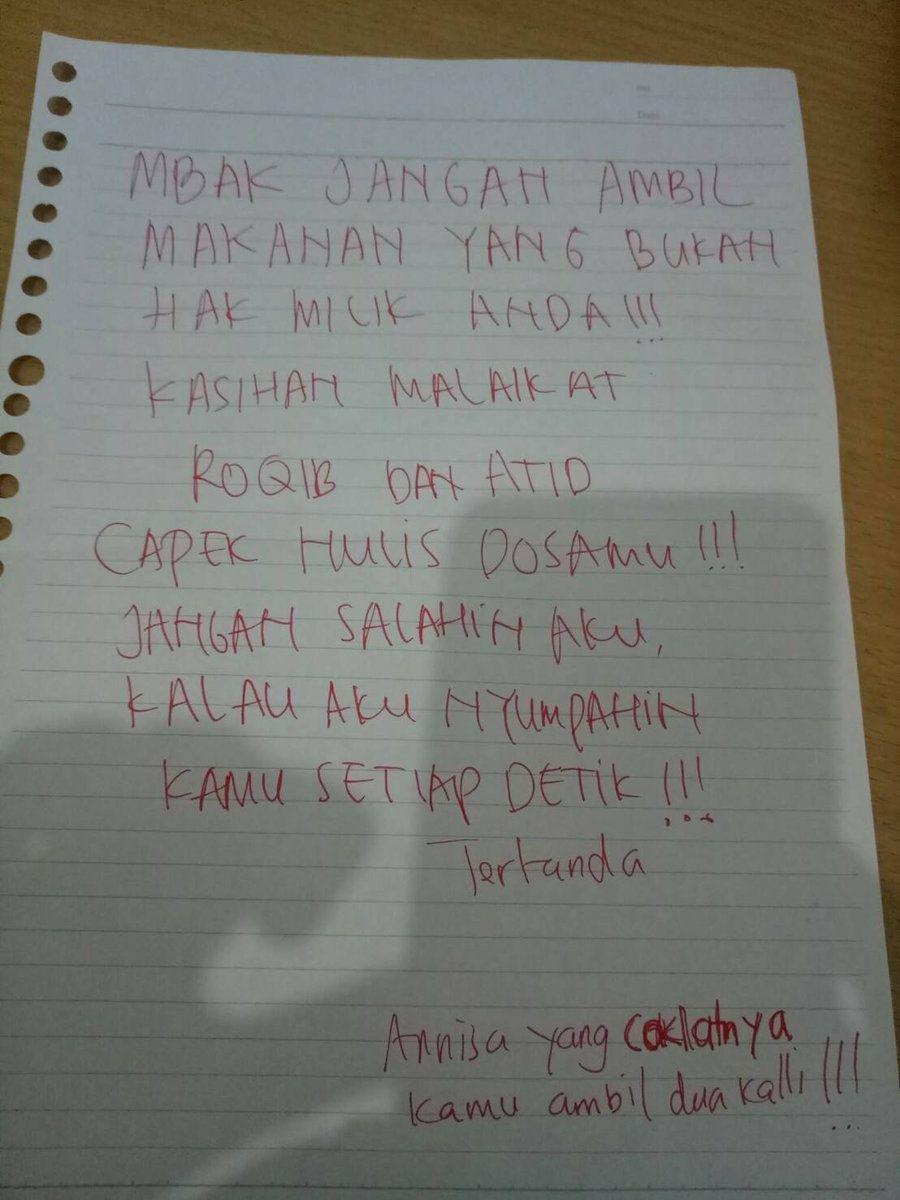 MBAK JANGAN AMBIL
MAKANAN YANG BUKAN
HAK MILIK ANDA!!!
KASIHAN MALAIKAT
ROQIB DAN ATID
CAPEK NULIS DOSAMU!!!
JANGAN SALAHIN AKU,
KALAU AKU NYUMPAHIN
KAMU SETIAP DETIK!!!
Tertanda
Annisa yang coklatnya
kamu ambil dua kalli!!!